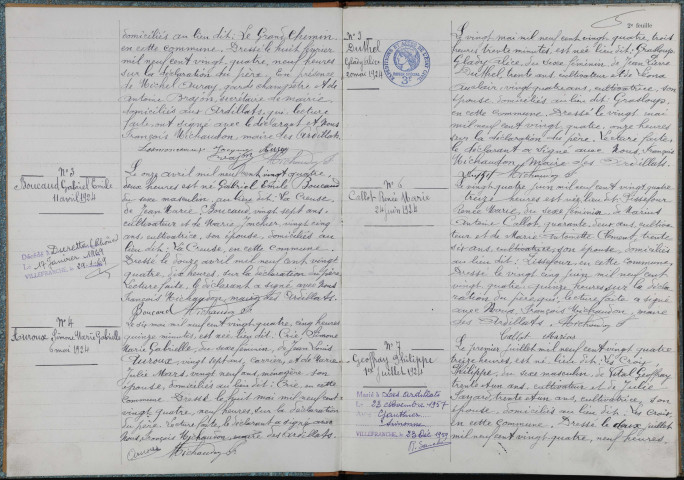 domiciliés au lieu dit: Le Grand Chemin
en cette commune. Dressé le huit
mil neuf cent vingt quatre, neuf heures
sur la déclaration du père. En présence
de Michel Duray, garde champêtre et de
Antoine secrétaire de mairie
domiciliés aux Ardillats, qui, lecture
faite, ont signé avec le déclarant et Nous
François Michaudon maire des Ardillats.
N° 3
Boucaud Gabriel Emile
11 avril 1924
Décédé à Durette (Rhône)
Le 17 Janvier 1969
VILLEFRANCHE, le 29.1.69
Le onze avril mil neuf cent vingt quatre,
deux heures est né Gabriel Emile Boucaud
du sexe masculin, au lieu dit: La Creuse,
de Jean Marie Boucaud, vingt sept ans,
cultivateur et de Marie vingt cinq
ans, cultivatrice, son épouse, domiciliés au
lieu dit: La Creuse, en cette commune.
Dressé le douze avril mil neuf cent vingt
quatre, dix heures, sur la déclaration du père.
Lecture faite, le déclarant a signé avec Nous
François Michaudon, maire des Ardillats.
Boucaud Michaudon F
N° 4
Auroux Simone Marie Gabrielle
6 mai 1924
Le six mai mil neuf cent vingt quatre, cinq heures
quinze minutes, est née, lieu dit: Crie, Simone
Marie Gabrielle, du sexe féminin, de Jean Louis
Auroux, vingt sept ans, carrier, et de Marie
Julie vingt neuf ans, ménagère, son
épouse, domiciliés au lieu dit: Crie, en cette
commune. Dressé le huit mai mil neuf cent
vingt quatre, neuf heures, sur la déclaration
du père. Lecture faite, le déclarant a signé avec
Nous François Michaudon, maire des Ardillats.
Auroux Michaudon F
2e feuille
N° 5
Duthel
Glady Alice
20 mai 1924
Le vingt mai mil neuf cent vingt quatre, trois
heures trente minutes, est née lieu dit: Grosloup,
Glady Alice, du sexe féminin, de Jean Pierre
Duthel, trente ans, cultivateur et de Léona
vingt quatre ans, cultivatrice, son
épouse, domiciliés au lieu dit: Grosloup,
en cette commune. Dressé le vingt mai
mil neuf cent vingt quatre, onze heures
sur la déclaration du père. Lecture faite,
le déclarant a signé avec Nous, François
Michaudon, Maire des Ardillats.
Michaudon F
N° 6
Collot Renée Marie
24 juin 1924
Le vingt quatre juin mil neuf cent vingt quatre
treize heures, est née lieu dit:
Renée Marie, du sexe féminin, de Marius
Antoine Collot, quarante deux ans, cultiva-
teur et de Marie Antoinette trente
six ans, cultivatrice, son épouse, domiciliés
au lieu dit: en cette commune.
Dressé le vingt cinq juin mil neuf cent
vingt quatre, quinze heures, sur la décla-
ration du père, qui, lecture faite, a signé
avec Nous François Michaudon, maire
des Ardillats. Michaudon F
Collot Marius
N° 7
Geoffray Philippe
1er juillet 1924
Marié à Les Ardillats
Le 23 novembre 1957
avec Gauthier
Simonne
VILLEFRANCHE, le
Le premier juillet mil neuf cent vingt quatre
treize heures, est né, lieu dit: La Croix,
Philippe, du sexe masculin, de Vital Geoffray,
trente et un ans, cultivateur et de Julie
trente et un ans, cultivatrice, son
épouse, domiciliés au lieu dit: La Croix,
en cette commune. Dressé le deux juillet
mil neuf cent vingt quatre, neuf heures,